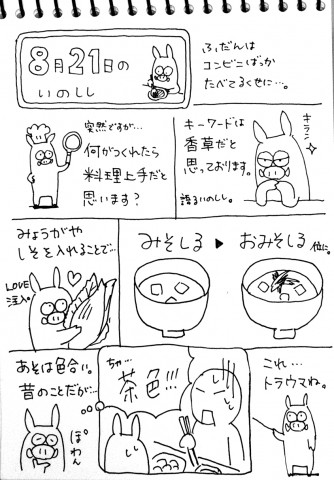 8月21日の
いのしし
ふだんは
コンビニばっか
たべてるくせに…。
突然ですが…
何がつくれたら
料理上手だと
思います？
キーワードは
香草だと
思っております。
キラン
語るいのしし。
みょうがや
しそを入れることで…
LOVE
注入。
みそしる ▶ おみそしる 位に。
あそは色合い。
昔のことだが…
ぽわん
ちゃ…
茶色!!!
これ…
トラウマね。